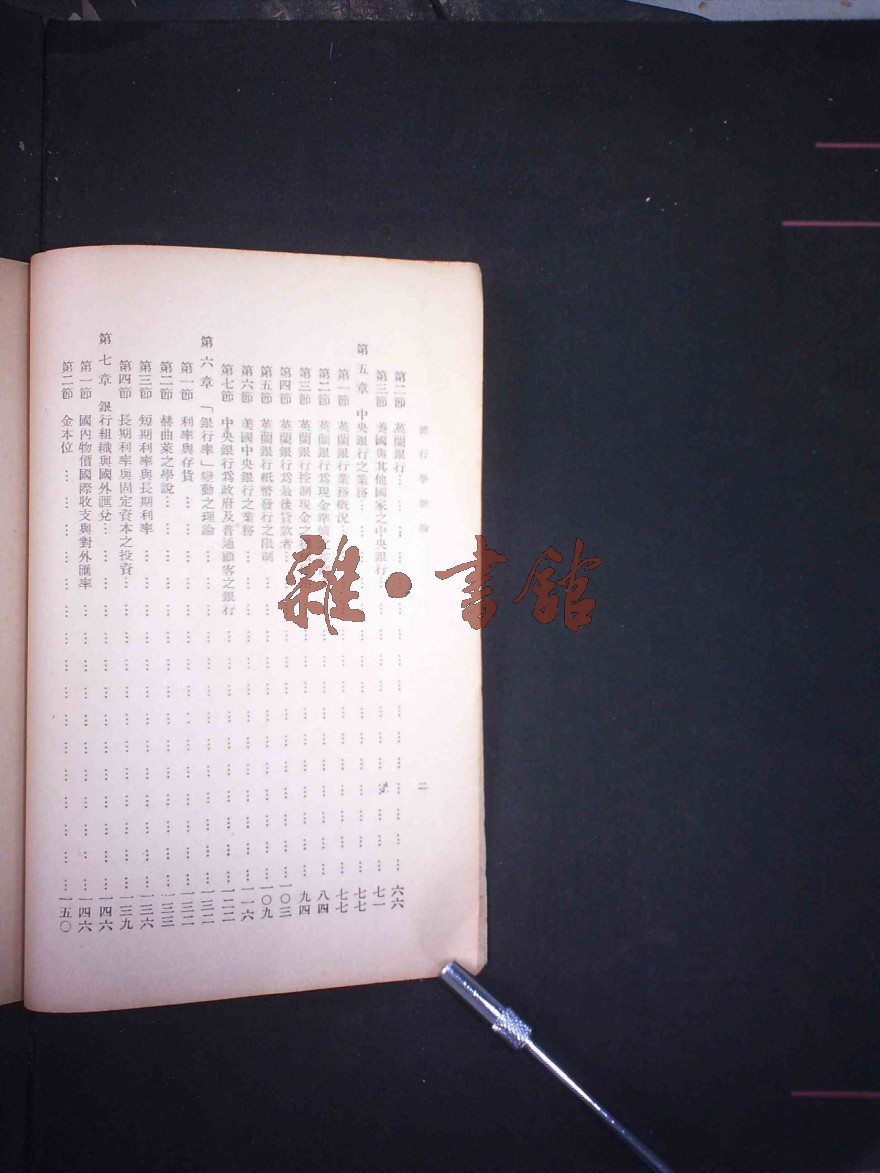 銀行學新論
二
第二節 英蘭銀行… … … … … … … … … … … … … … 六六
第三節 美國與其他國家之中央銀行… … … … … … … … … … 七一
第五章 中央銀行之業務… … … … … … … … … … … … … 七七
第一節 英蘭銀行業務概況… … … … … … … … … … … … 七七
第二節 英蘭銀行爲現金準 … … … … … … … … … … 八四
第三節 英蘭銀行控制現金之 … … … … … … … … … … 九四
第四節 英蘭銀行爲最後貸款者… … … … … … … … … … … 一〇三
第五節 英蘭銀行紙幣發行之限制 … … … … … … … … … … 一〇九
第六節 美國中央銀行之業務… … … … … … … … … … … … 一一六
第七節 中央銀行爲政府及普通顧客之銀行 … … … … … … … … … 一二二
第六章 「銀行率」變動之理論… … … … … … … … … … … … 一三二
第一節 利率與存貨 … … … … … … … … … … … … … … 一三二
第二節 赫曲萊之學說… … … … … … … … … … … … … … 一三三
第三節 短期利率與長期利率 … … … … … … … … … … … … 一三六
第四節 長期利率與固定資本之投資… … … … … … … … … … … 一三九
第七章 銀行組織與國外匯兌… … … … … … … … … … … … … 一四六
第一節 國內物價國際收支與對外匯率 … … … … … … … … … … 一四六
第二節 金本位 … … … … … … … … … … … … … … … … 一五〇
雜·書館